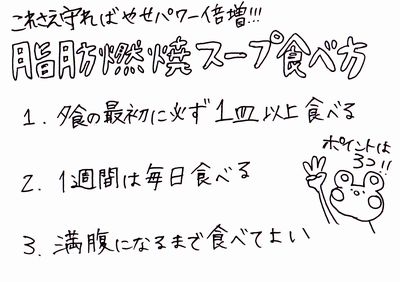 これさえ守ればやせパワー倍増!!!
脂肪燃焼スープ食べ方
1. 夕食の最初に必ず1皿以上食べる
ポイントは
3コ!!
2. 1週間は毎日食べる
3. 満腹になるまで食べてよい